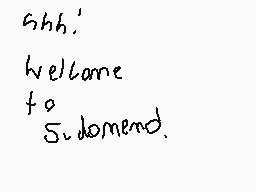 shh!
Wellcome
to
Sudomend.